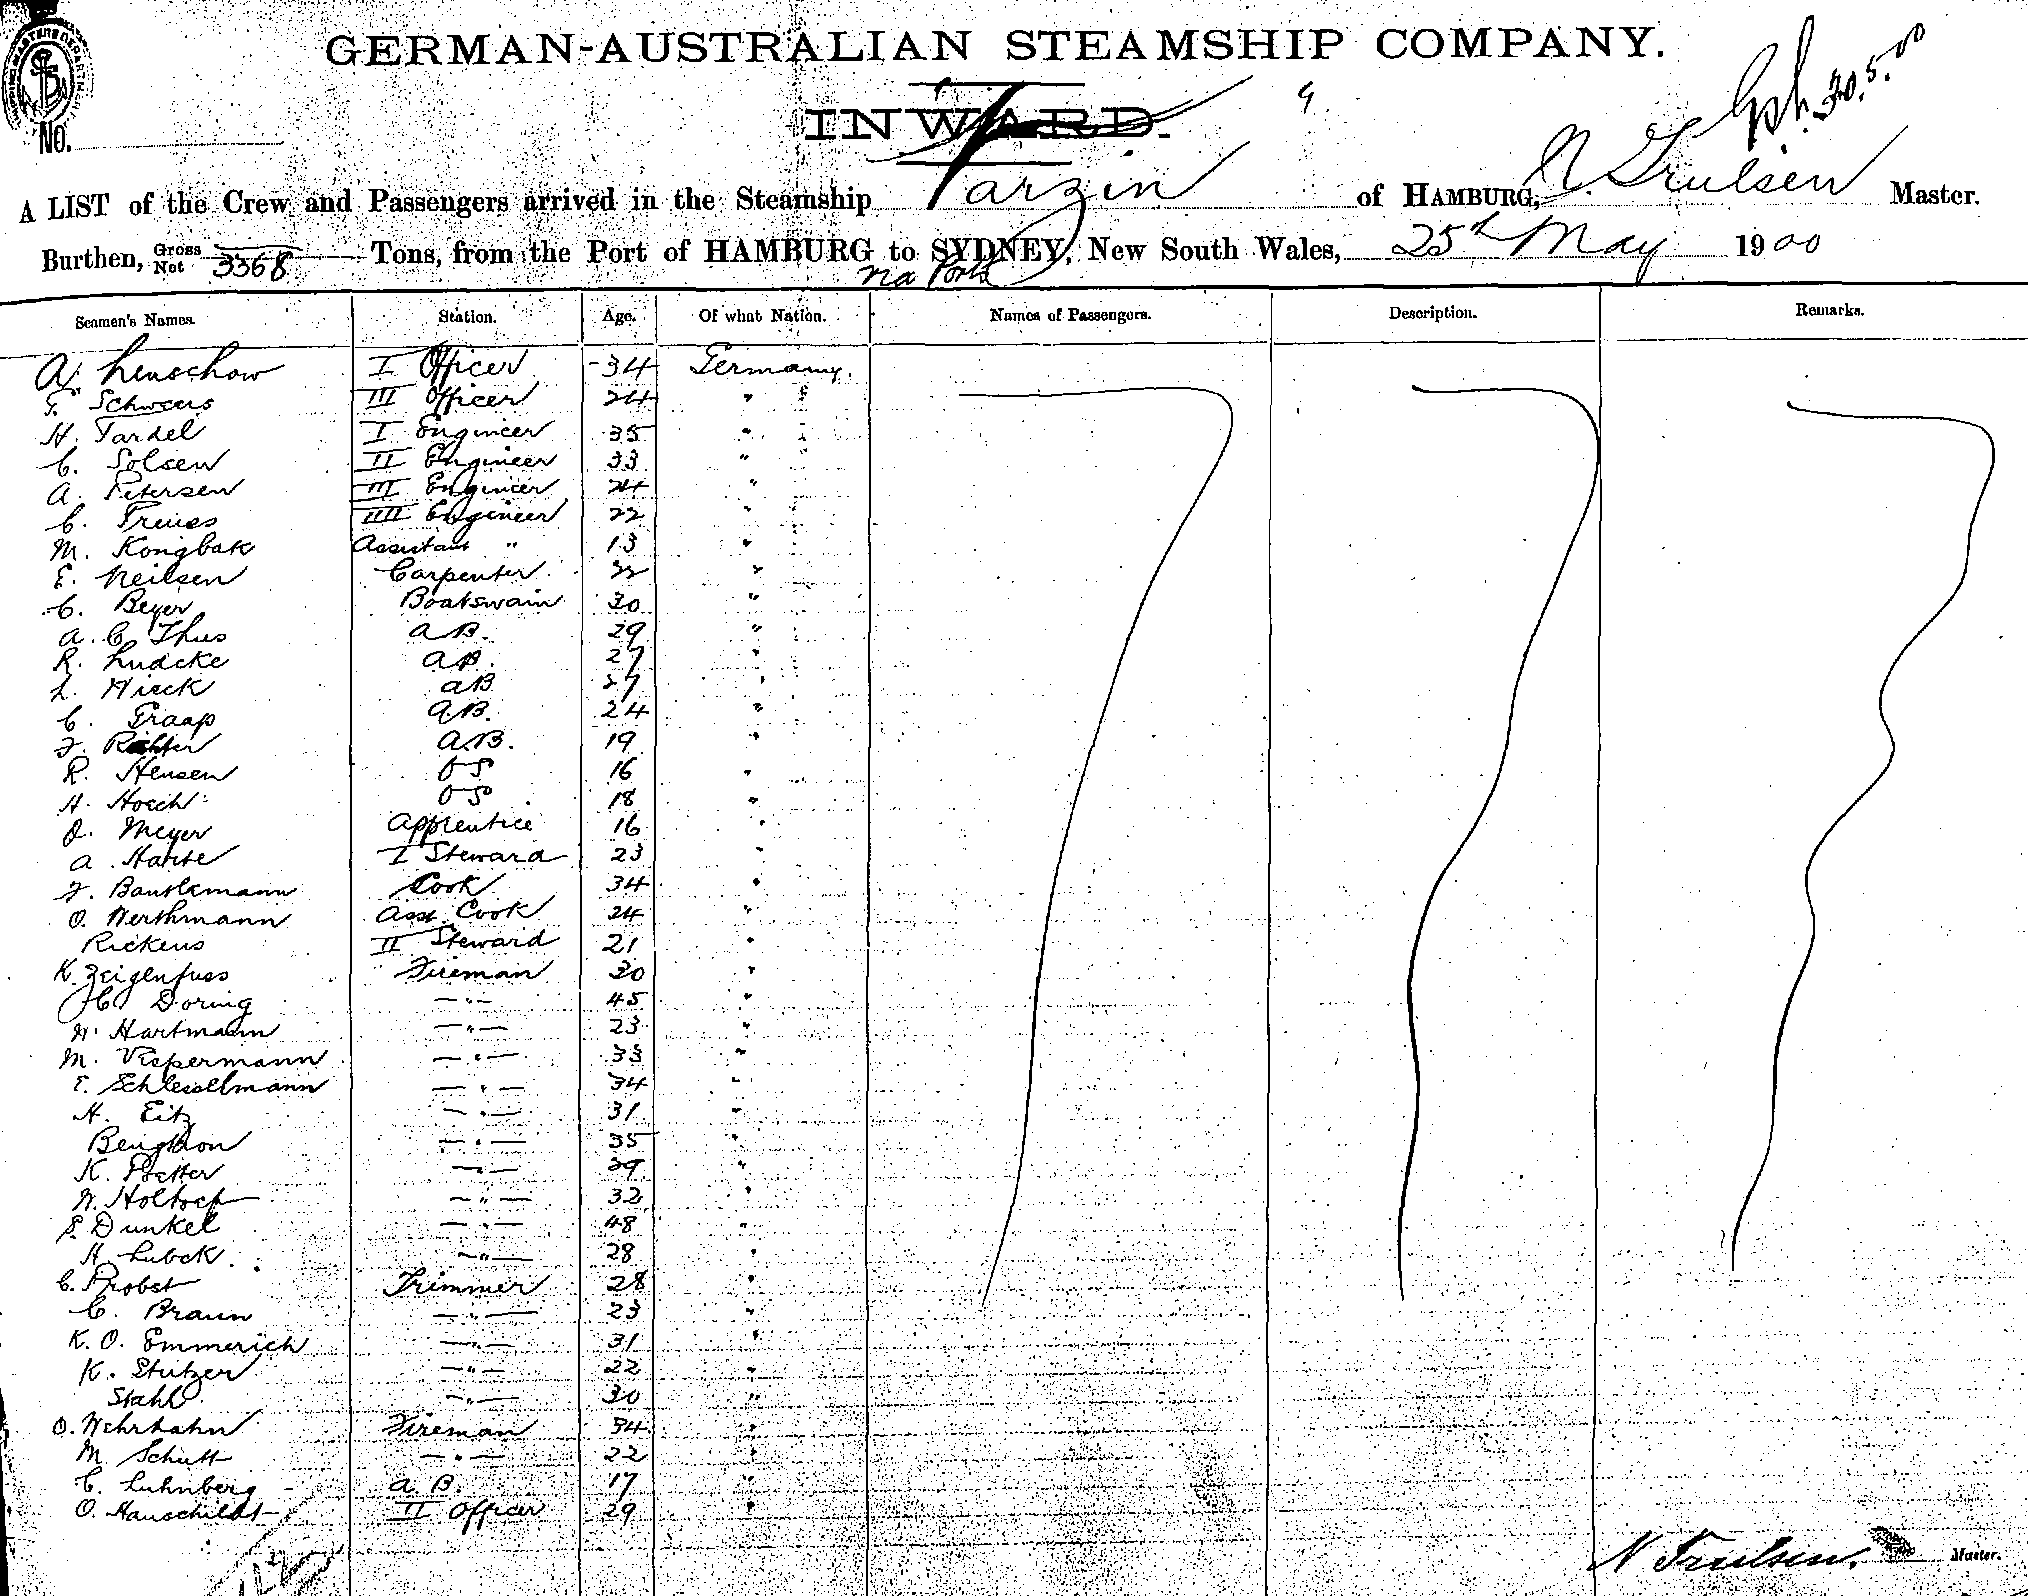 GERMAN-AUSTRALIAN STEAMSHIP COMPANY.
30.5.00
INWARD.
No.
A LIST of the Crew and Passengers arrived in the Steamship Varzin of HAMBURG, N. Trulsen Master.
Burthen, Gross Net 3368 Tons, from the Port of HAMBURG to SYDNEY, New South Wales, 25th May 1900
via Ports
Seamen's Names. Station. Age. Of what Nation. Names of Passengers. Description. Remarks.
A. Lenschow I Officer 34 Germany.
F. Schweers III Officer 24 "
H. Tardel I Engineer 35 "
C. Solsen II Engineer 33 "
A. Petersen III Engineer 24 "
C. Preuss IIII Engineer 22 "
M. Kongbak Assistant " 13 "
E. Neilsen Carpenter 22 "
C. Beyer Boatswain 30 "
A. C. Thus A.B. 29 "
R. Ludcke A.B. 27 "
L. Hieck A.B. 27 "
C. Graap A.B. 24 "
F. Richter A.B. 19 "
R. Hensen O S 16 "
H. Hoech O S 18 "
O. Meyer Apprentice 16 "
A. Harte I Steward 23 "
F. Bautlemann Cook 34 "
O. Werthmann Asst Cook 24 "
Rickens II Steward 21 "
K. Zeigenfuss Fireman 30 "
C. Doring -"- 45 "
W. Hartmann -"- 23 "
M. Viepermann -"- 33 "
E. Schlesselmann -"- 34 "
H. Eitz -"- 31 "
Bengtson -"- 35 "
K. Potter -"- 29 "
W. Holtorf -"- 32 "
S. Dunkel -"- 48 "
H. Lubck -"- 28 "
C. Probst Trimmer 28 "
C. Braun -"- 23 "
K. O. Emmerich -"- 31 "
K. Stutzer -"- 22 "
Stahl -"- 30 "
O. Wehrhahn Fireman 34 "
M. Schutt -"- 22 "
C. Luhnberg A.B. 17 "
O. Hauschildt II Officer 29 "
N Trulsen. Master.